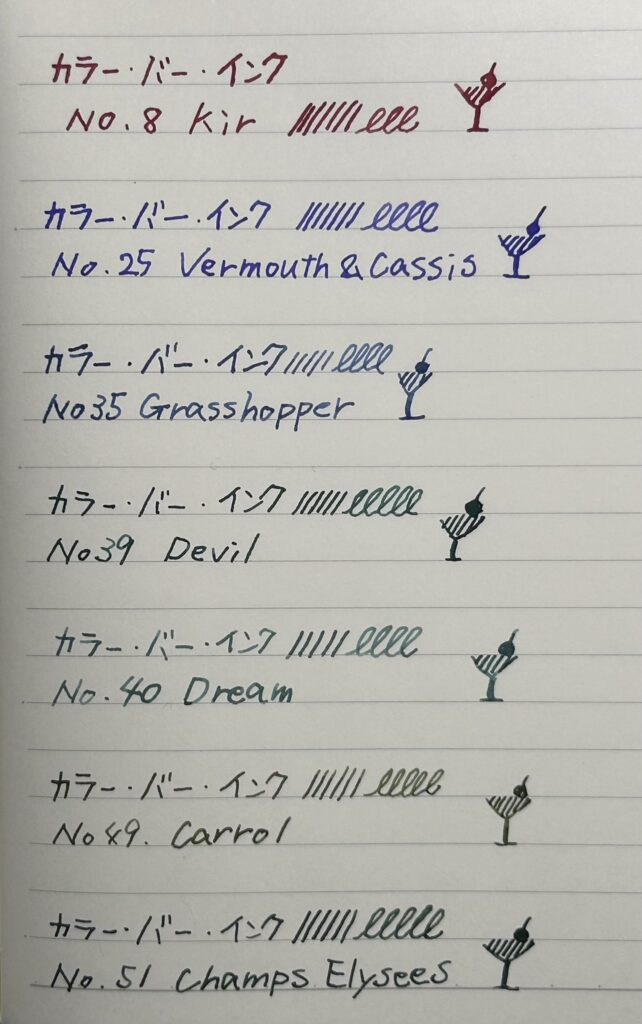 カラー・バー・インク
No.8 Kir
カラー・バー・インク
No.25 Vermouth&Cassis
カラー・バー・インク
No35 Grasshopper
カラー・バー・インク
No39 Devil
カラー・バー・インク
No.40 Dream
カラー・バー・インク
No49. Carrol
カラー・バー・インク
No.51 Champs Elysees